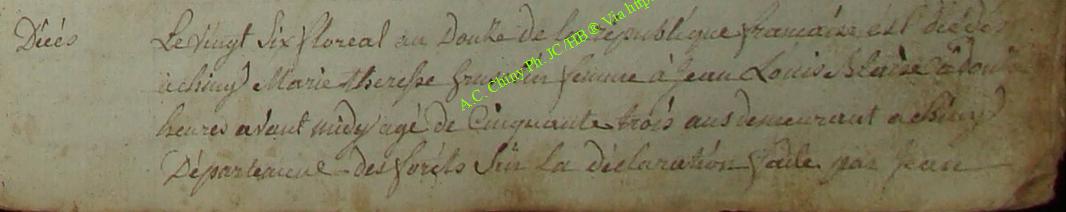 Décés
Le vingt six floreal an Douze de la république francaise est décédé
a chiny Marie theresse femme à Jean Louis Blaise a
heures avant midy agé de Cinquante trois ans demeurant a chiny
Département des foréts Sur La déclaration faite par Jean
A.C. Chiny Ph. JC/HB ® Via http